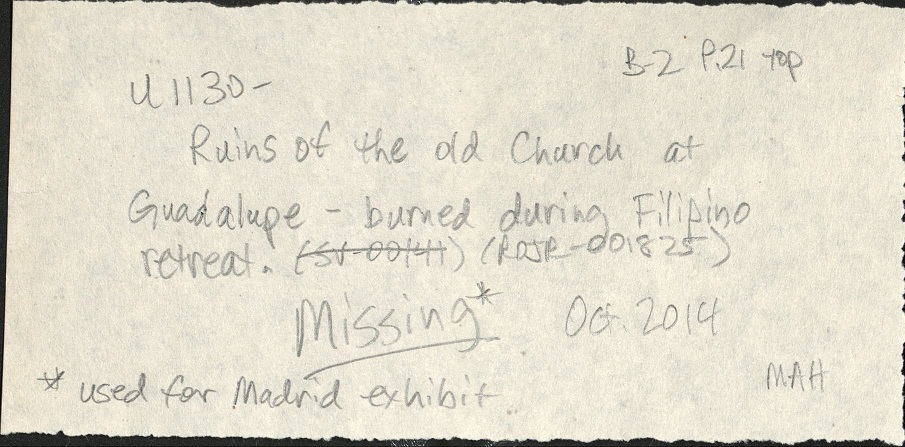 B-2 P.21 top
U 1130-
Ruins of the old Church at
Guadalupe - burned during Filipino
retreat. (SV-00141) (ROJR-001825)
Missing* Oct. 2014
MAH
* used for Madrid exhibit